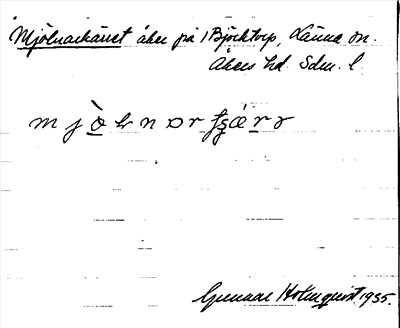 Mjölnarkärret åker på 1 Björktorp, Länna sn.
Åkers hd Sdm. l
Gunnar Holmquist 1935.